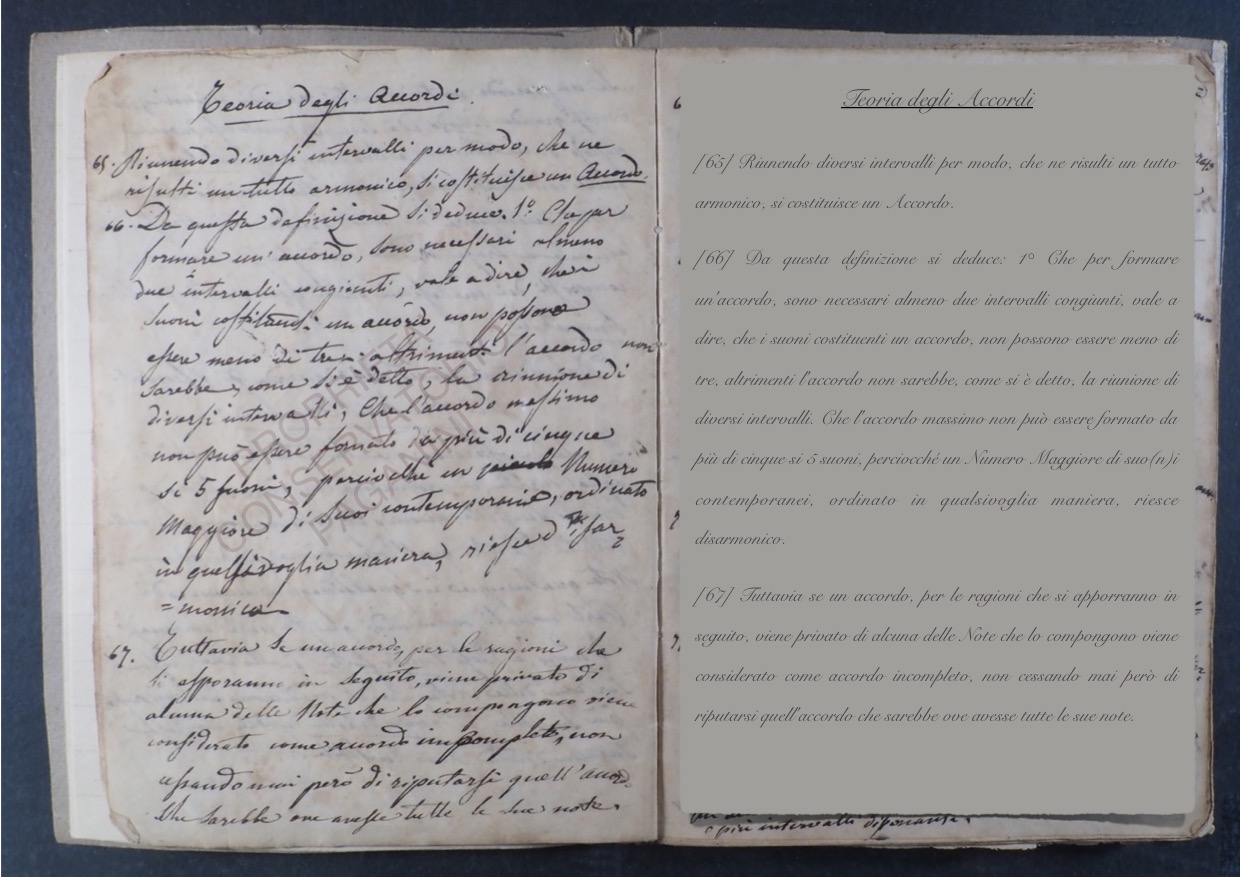 Teoria degli Accordi.
65. Riunendo diversi intervalli per modo, che ne
risulti un tutto armonico, si costituisce un Accordo.
66. Da questa definizione si deduce. 1º Che per
formare un' accordo, sono necessari almeno
due intervalli congiunti, vale a dire, che i
suoni costituenti un accordo, non possono
essere meno di tre: altrimenti l'accordo non
sarebbe, come si è detto, la riunione di
diversi intervalli, Che l'accordo massimo
non può essere formato da più di cinque
si 5 suoni, perciocchè un Numero
Maggiore di suoi contemporanei, ordinato
in qualsivoglia maniera, riesce disar
=monico
67. Tuttavia se un accordo, per le ragioni che
si esporanno in seguito, viene privato di
alcuna delle Note che lo compongono viene
considerato come accordo incompleto, non
cessando mai però di riputarsi quell'accor
che sarebbe ove avesse tutte le sue note.
PROPRIETÀ
CONSERVATORIO
PAGANINI
Teoria degli Accordi
[65] Riunendo diversi intervalli per modo, che ne risulti un tutto
armonico, si costituisce un Accordo.
[66] Da questa definizione si deduce: 1º Che per formare
un'accordo, sono necessari almeno due intervalli congiunti, vale a
dire, che i suoni costituenti un accordo, non possono essere meno di
tre, altrimenti l'accordo non sarebbe, come si è detto, la riunione di
diversi intervalli. Che l'accordo massimo non può essere formato da
più di cinque si 5 suoni, perciocché un Numero Maggiore di suo(n)i
contemporanei, ordinato in qualsivoglia maniera, riesce
disarmonico.
[67] Tuttavia se un accordo, per le ragioni che si apporranno in
seguito, viene privato di alcuna delle Note che lo compongono viene
considerato come accordo incompleto, non cessando mai però di
riputarsi quell'accordo che sarebbe ove avesse tutte le sue note.
o più intervalli dissonanti.